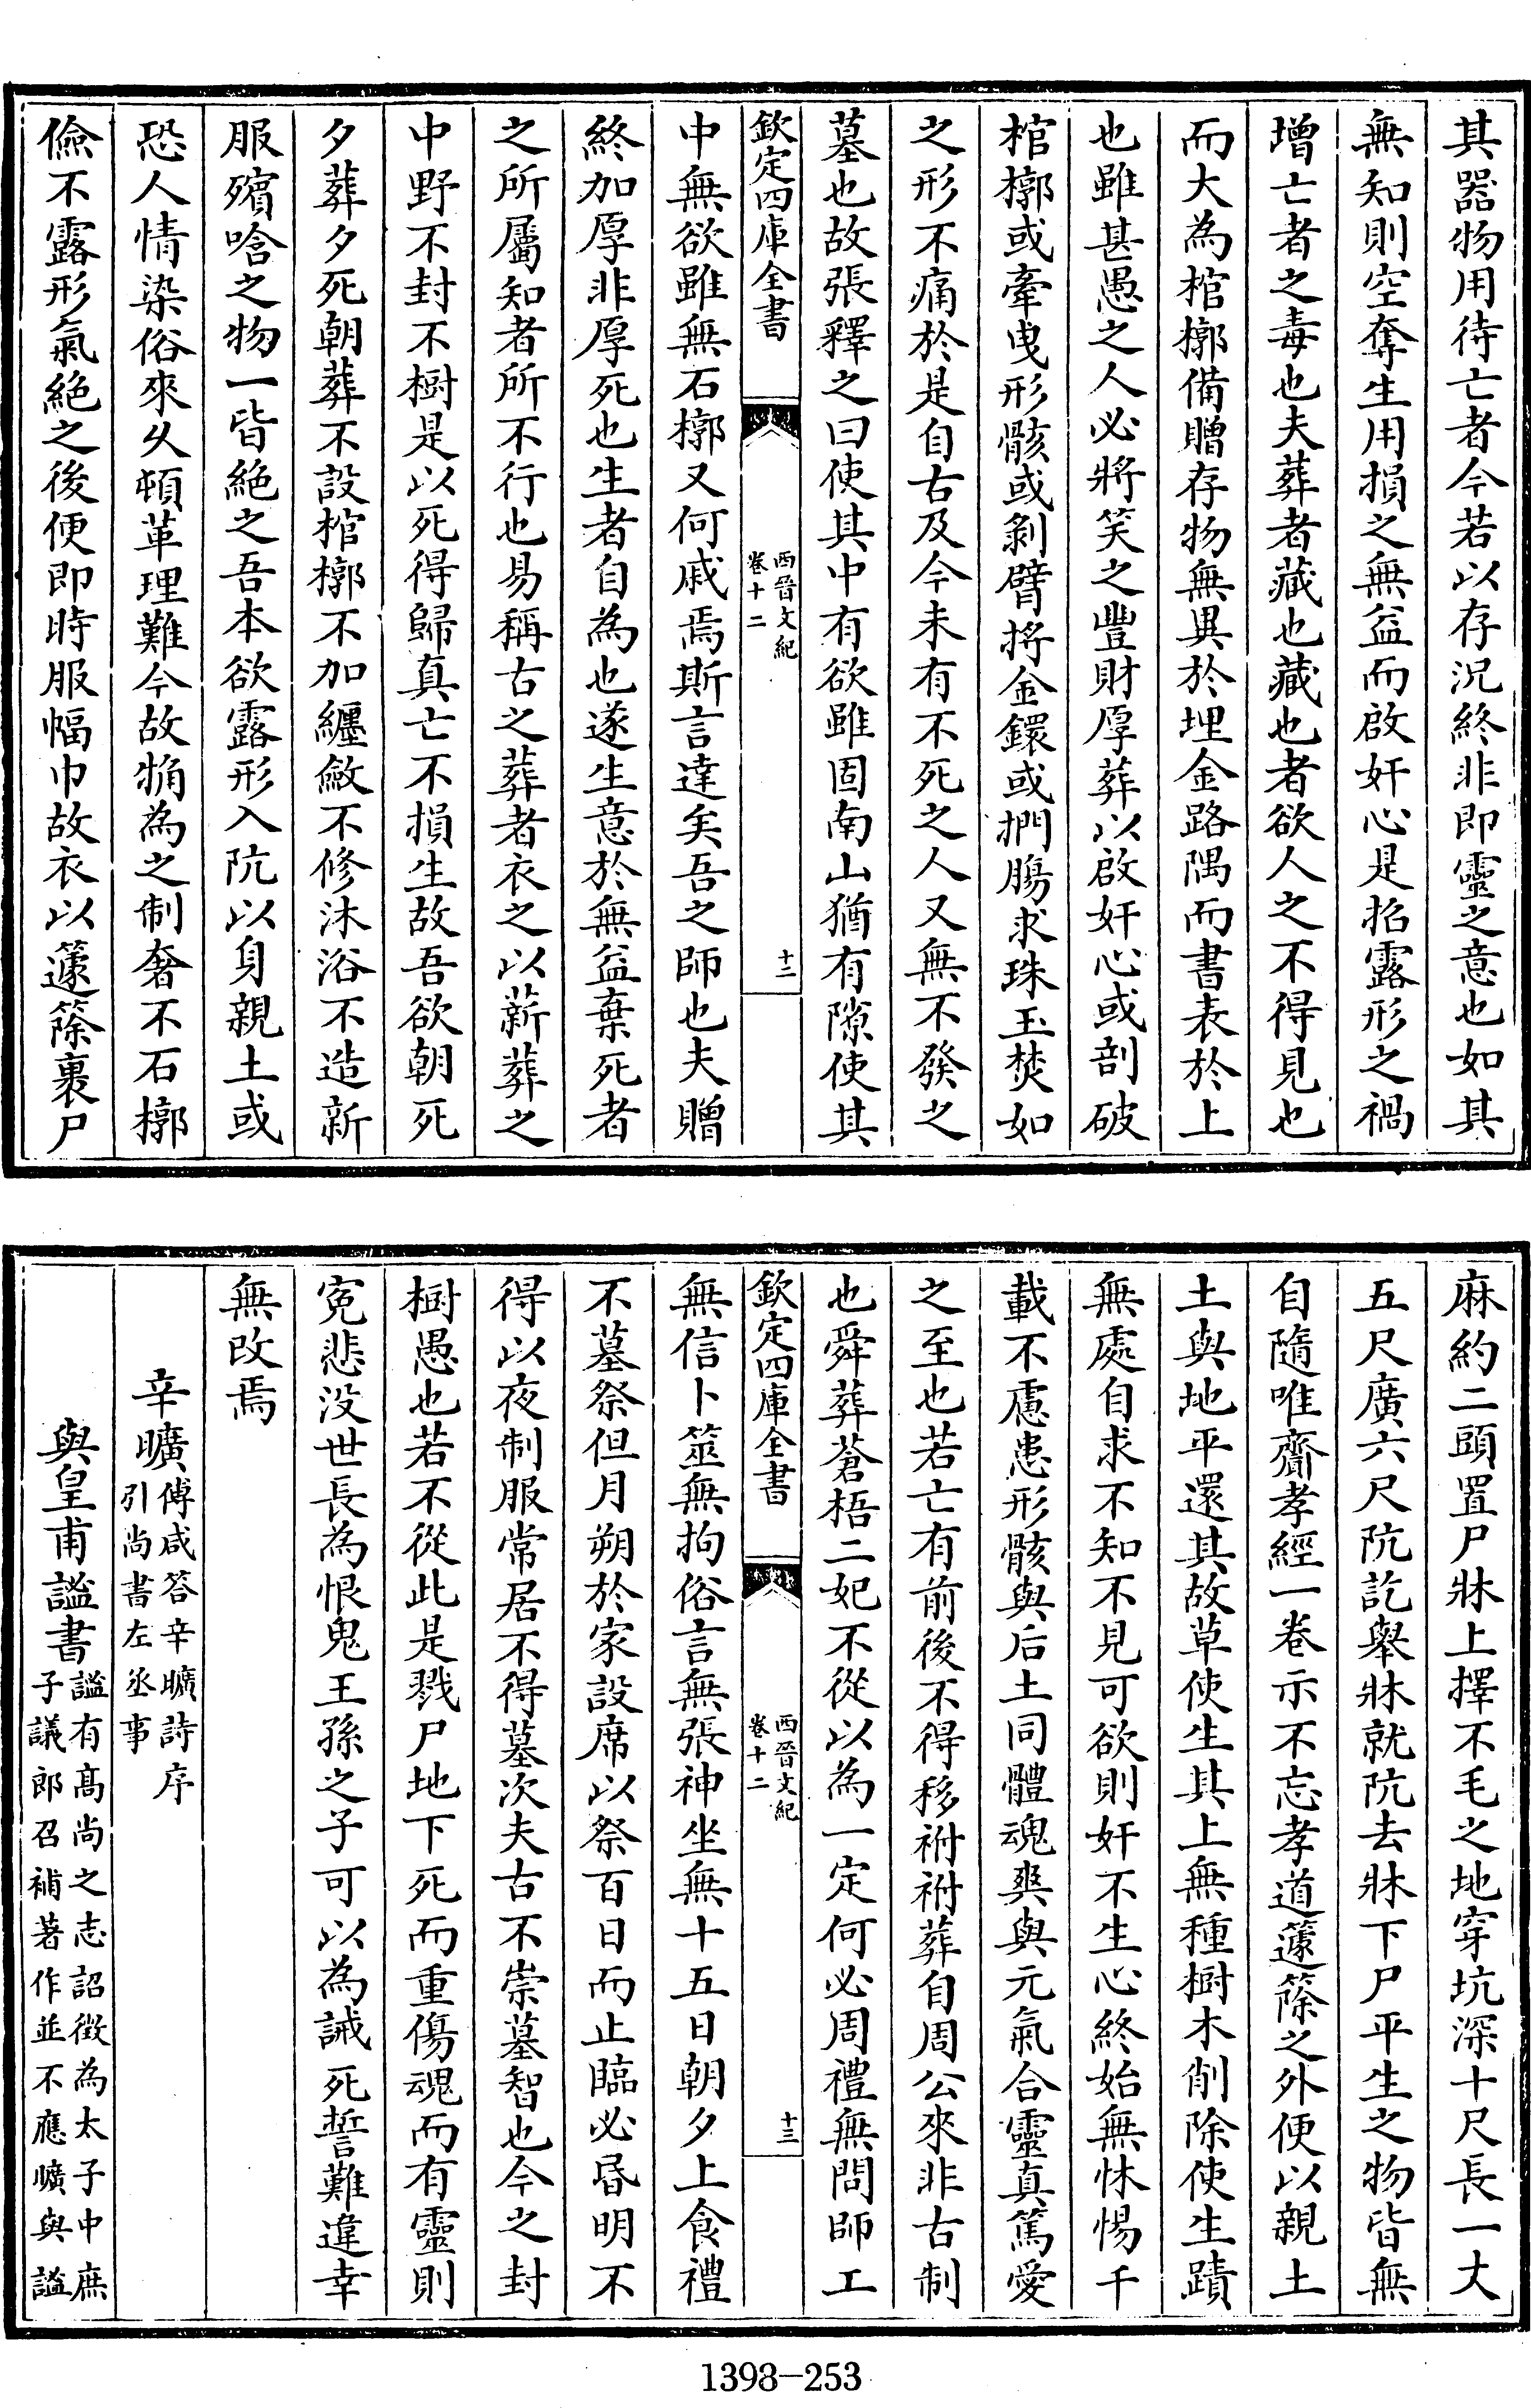 其器物用待亡者今若以存况終非即靈之意也如其
無知則空奪生用損之無益而啟奸心是招露形之禍
增亡者之毒也夫葬者藏也藏也者欲人之不得見也
而大為棺槨備贈存物無異於埋金路隅而書表於上
也雖甚愚之人必將笑之豐財厚葬以啟奸心或剖破
棺槨或牽曳形骸或剝臂捋金鐶或捫腸求珠玉焚如
之形不痛於是自古及今未有不死之人又無不發之
墓也故張釋之曰使其中有欲雖固南山猶有隙使其
欽定四庫全書
西晉文紀
卷十二
十三
中無欲雖無石槨又何戚焉斯言達矣吾之師也夫贈
終加厚非厚死也生者自為也遂生意於無益棄死者
之所屬知者所不行也易稱古之葬者衣之以薪葬之
中野不封不樹是以死得歸真亡不損生故吾欲朝死
夕葬夕死朝葬不設棺槨不加纏斂不修沐浴不造新
服殯唅之物一皆絕之吾本欲露形入阬以身親土或
恐人情染俗來久頓革理難今故觕為之制奢不石槨
儉不露形氣絕之後便即時服幅巾故衣以籧篨裹尸
麻約二頭置尸牀上擇不毛之地穿坑深十尺長一丈
五尺廣六尺阬訖舉牀就阬去牀下尸平生之物皆無
自隨唯齎孝經一卷示不忘孝道籧篨之外便以親土
土與地平還其故草使生其上無種樹木削除使生蹟
無處自求不知不見可欲則奸不生心終始無怵惕千
載不慮患形骸與后土同體魂爽與元氣合靈真篤愛
之至也若亡有前後不得移祔祔葬自周公來非古制
也舜葬蒼梧二妃不從以為一定何必周禮無問師工
欽定四庫全書
西晉文紀
卷十二
十三
無信卜筮無拘俗言無張神坐無十五日朝夕上食禮
不墓祭但月朔於家設席以祭百日而止臨必昏明不
得以夜制服常居不得墓次夫古不崇墓智也今之封
樹愚也若不從此是戮尸地下死而重傷魂而有靈則
冤悲没世長為恨鬼王孫之子可以為誡死誓難違幸
無改焉
辛曠傅咸答辛曠詩序
引尚書左丞事
與皇甫謐書謐有高尚之志詔徵為太子中庶
子議郎召補著作並不應曠與謐
1398-253